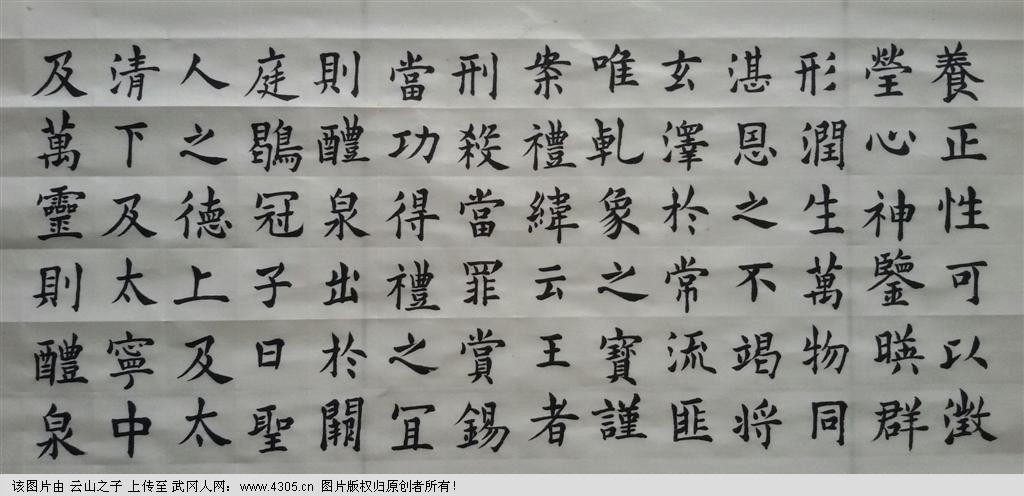 養正性可以澂
瑩心神鑒暎群
形潤生萬物同
湛恩之不竭將
玄澤於常流匪
唯乹象之寶謹
案禮緯云王者
刑殺當罪賞錫
當功得禮之宜
則醴泉出於闕
庭鶡冠子曰聖
人之德上及太
清下及太寧中
及萬靈則醴泉
该图片由 云山之子 上传至 武冈人网：www.4305.cn 图片版权归原创者所有！